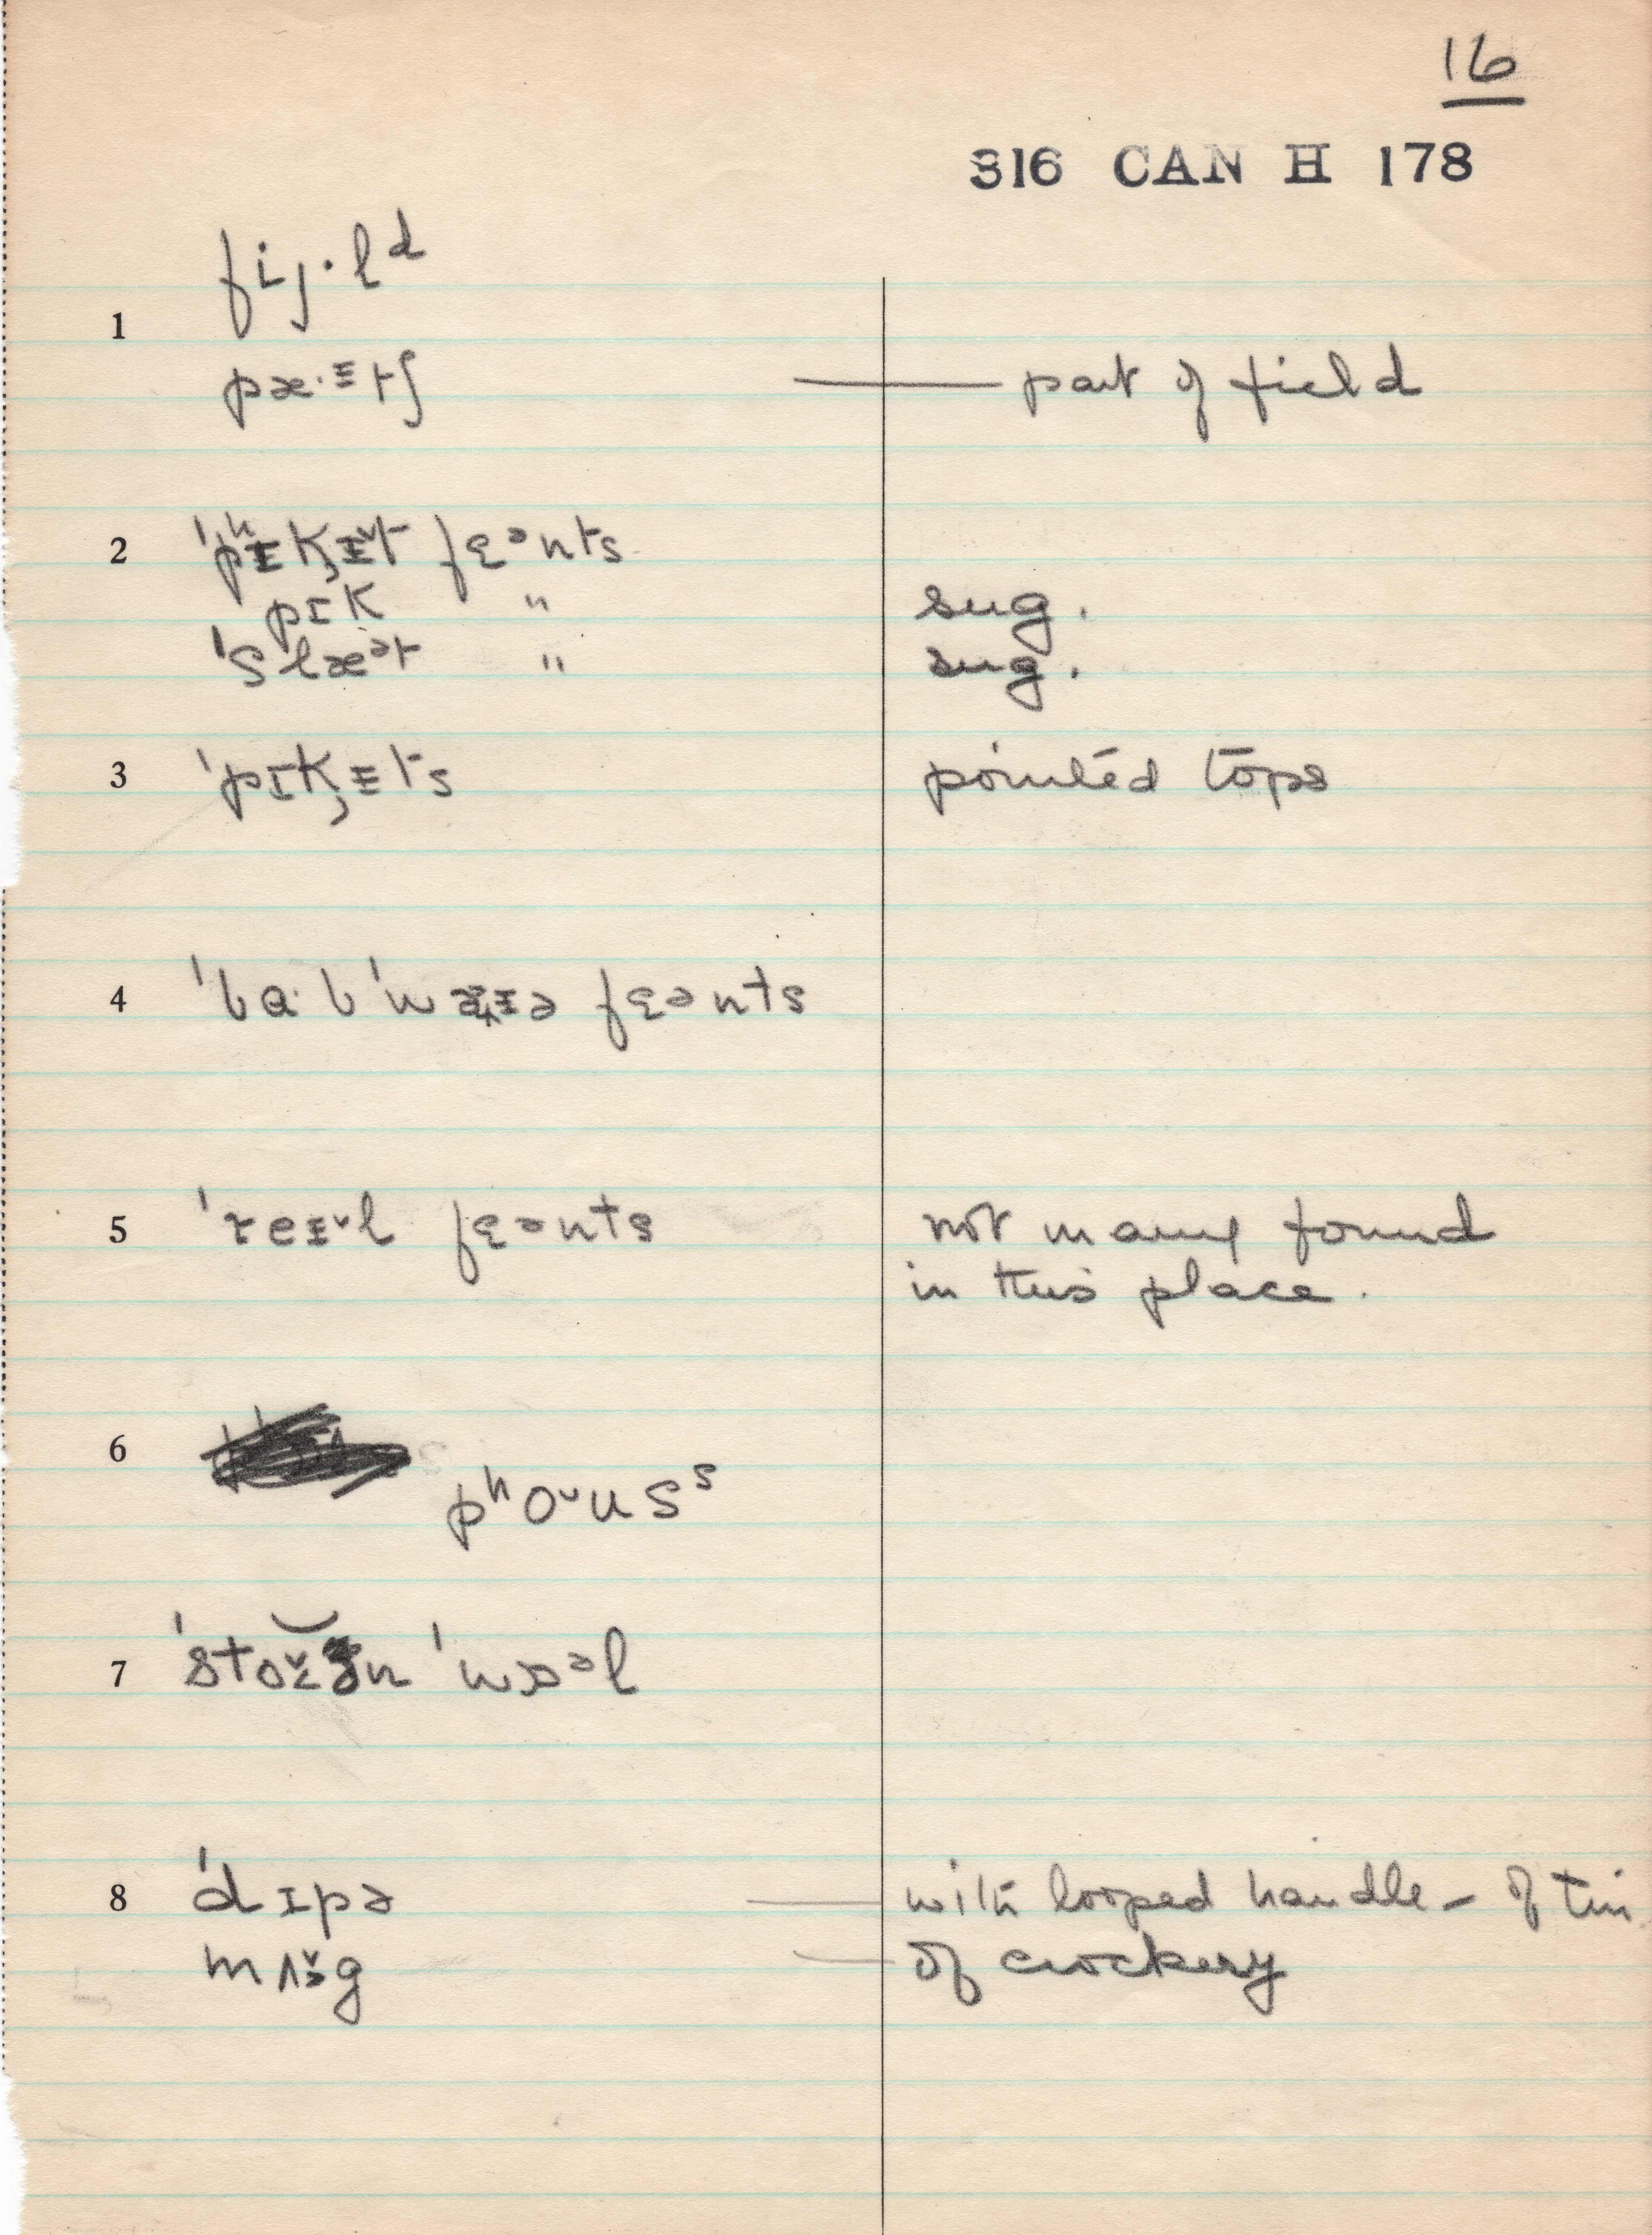 16
316 CAN H 178
fij·lᵈ
1
pæ·ᵻtʃ — part of field
2 'pʰᵻk̡ᵻ˅t fɛ̨ᵊnts
pɪk " sug.
'slæᵊt " sug.
3 'pɪk̡ᵻts pointed tops
4 'bɑ·b'wæ̨ᵻə fɛ̨ənts
5 'reᵻ˅l fɛ̨ənts not many found
in this place.
6
pʰo˅usˢ
7 'sto˅ən 'wɒᵊl
8 'dɪpə — with looped handle – of tin
mʌ˅əg — of crockery